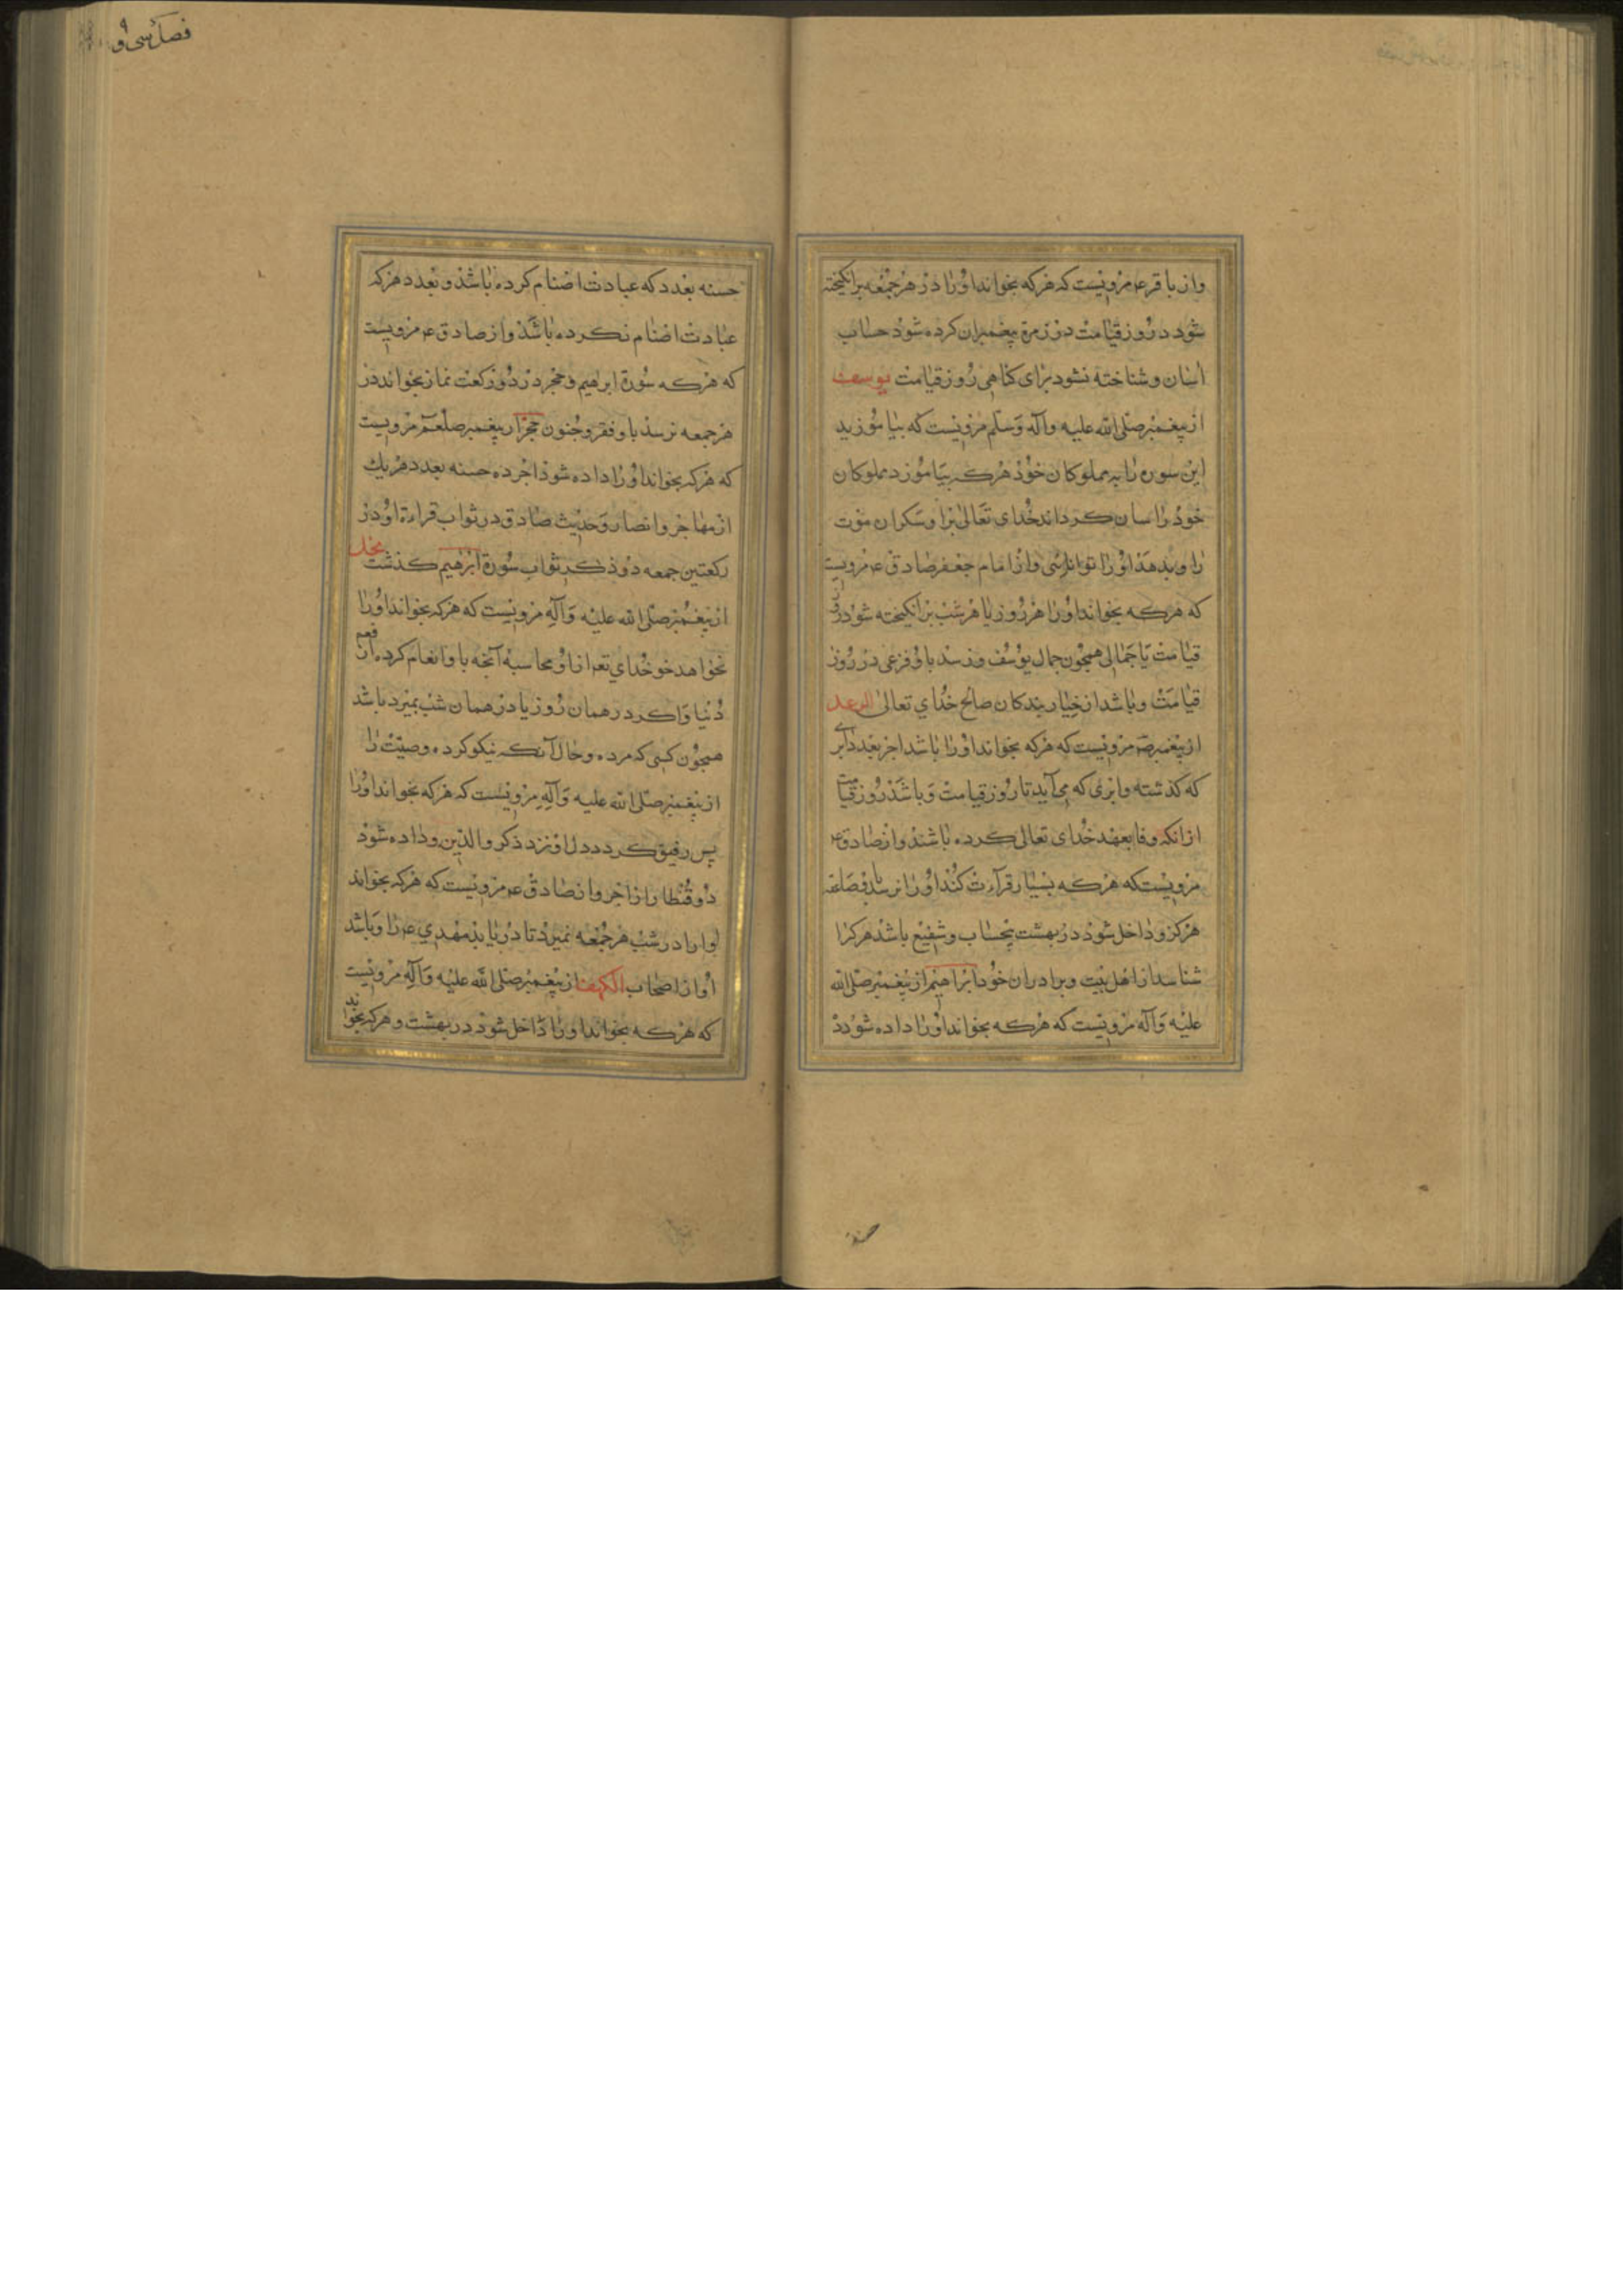 واز باقر عم مرویست که هرکه بخواند اورا در هر جمعه برانکیخته
شود در روز قیامت در زمرهٔ پیغمبران کرده شود حساب
آسان و شناخته نشود برای کناهی روز قیامت یوسف
از پیغمبر صلی الله علیه وآله وسلم مرویست که بیاموزید
این سوره را به مملوکان خود هرکه بیاموزد مملوکان
خود را آسان کرداند خدای تعالی براو سکران موت
را و بدهد اورا توانائی واز امام جعفر صادق عم مرویست
که هرکه بخواند اورا هر روز یا هر شب برانکیخته شود در
قیامت با جمالی همچون جمال یوسف و نرسد باو فزعی در روز
قیامت وباشد از خیار بندکان صالح خدای تعالی الرعد
از پیغمبر صم مرویست که هرکه بخواند اورا باشد اجر بعدد ابر
که کذشته وابری که می آید تا روز قیامت وباشد روز قیامت
ازانکه وفا بعهد خدای تعالی کرده باشند واز صادق عم
مرویست که هرکه بسیار قرآءت کند اورا نرساند صاعقه
هرکز وداخل شود در بهشت بیحساب وشفیع باشد هرکرا
شناسد از اهل بیت وبرادران خود ابراهیم از پیغمبر صلی الله
علیه وآله مرویست که هرکه بخواند اورا داده شود ده
حسنه
فصل سی و
حسنه بعدد که عبادت اصنام کرده باشد و بعدد هرکه
عبادت اصنام نکرده باشد واز صادق عم مرویست
که هرکه سورة ابراهیم وحجر در دو رکعت نماز بخواند در
هر جمعه نرسد باو فقر وجنون حجر از پیغمبر صلعم مرویست
که هرکه بخواند اورا داده شود اجر ده حسنه بعدد هریک
از مهاجر وانصار وحدیث صادق در ثواب قراءة او در
رکعتین جمعه در ذکر ثواب سورة ابرهیم کذشت نحل
از پیغمبر صلی الله علیه وآله مرویست که هرکه بخواند اورا
نخواهد خدای تعم ازاو محاسبهٔ آنچه باو انعام کرده از نعم
دنیا واکر در همان روز یا در همان شب بمیرد باشد
همچون کسی که مرده وحال آنکه نیکو کرده وصیت را
از پیغمبر صلی الله علیه وآله مرویست که هرکه بخواند اورا
پس رقیق کردد دل او نزد ذکر والدین وداده شود
دو قنطار از اجر واز صادق عم مرویست که هرکه بخواند
اورا در شب هر جمعه نمیرد تا دریابد مهدی عم را وباشد
اواز اصحاب الکهف از پیغمبر صلی الله علیه وآله مرویست
که هرکه بخواند اورا داخل شود در بهشت وهرکه بخواند